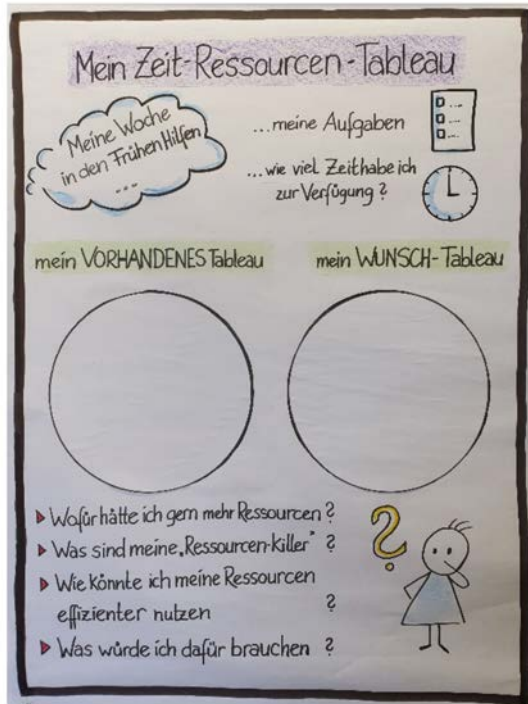 Mein Zeit-Ressourcen-Tableau
Meine Woche
in den Frühen Hilfen
...
...meine Aufgaben
...wie viel Zeit habe ich
zur Verfügung?
mein VORHANDENES Tableau
mein WUNSCH-Tableau
Wofür hätte ich gern mehr Ressourcen?
Was sind meine „Ressourcen-Killer“?
Wie könnte ich meine Ressourcen
effizienter nutzen?
Was würde ich dafür brauchen?